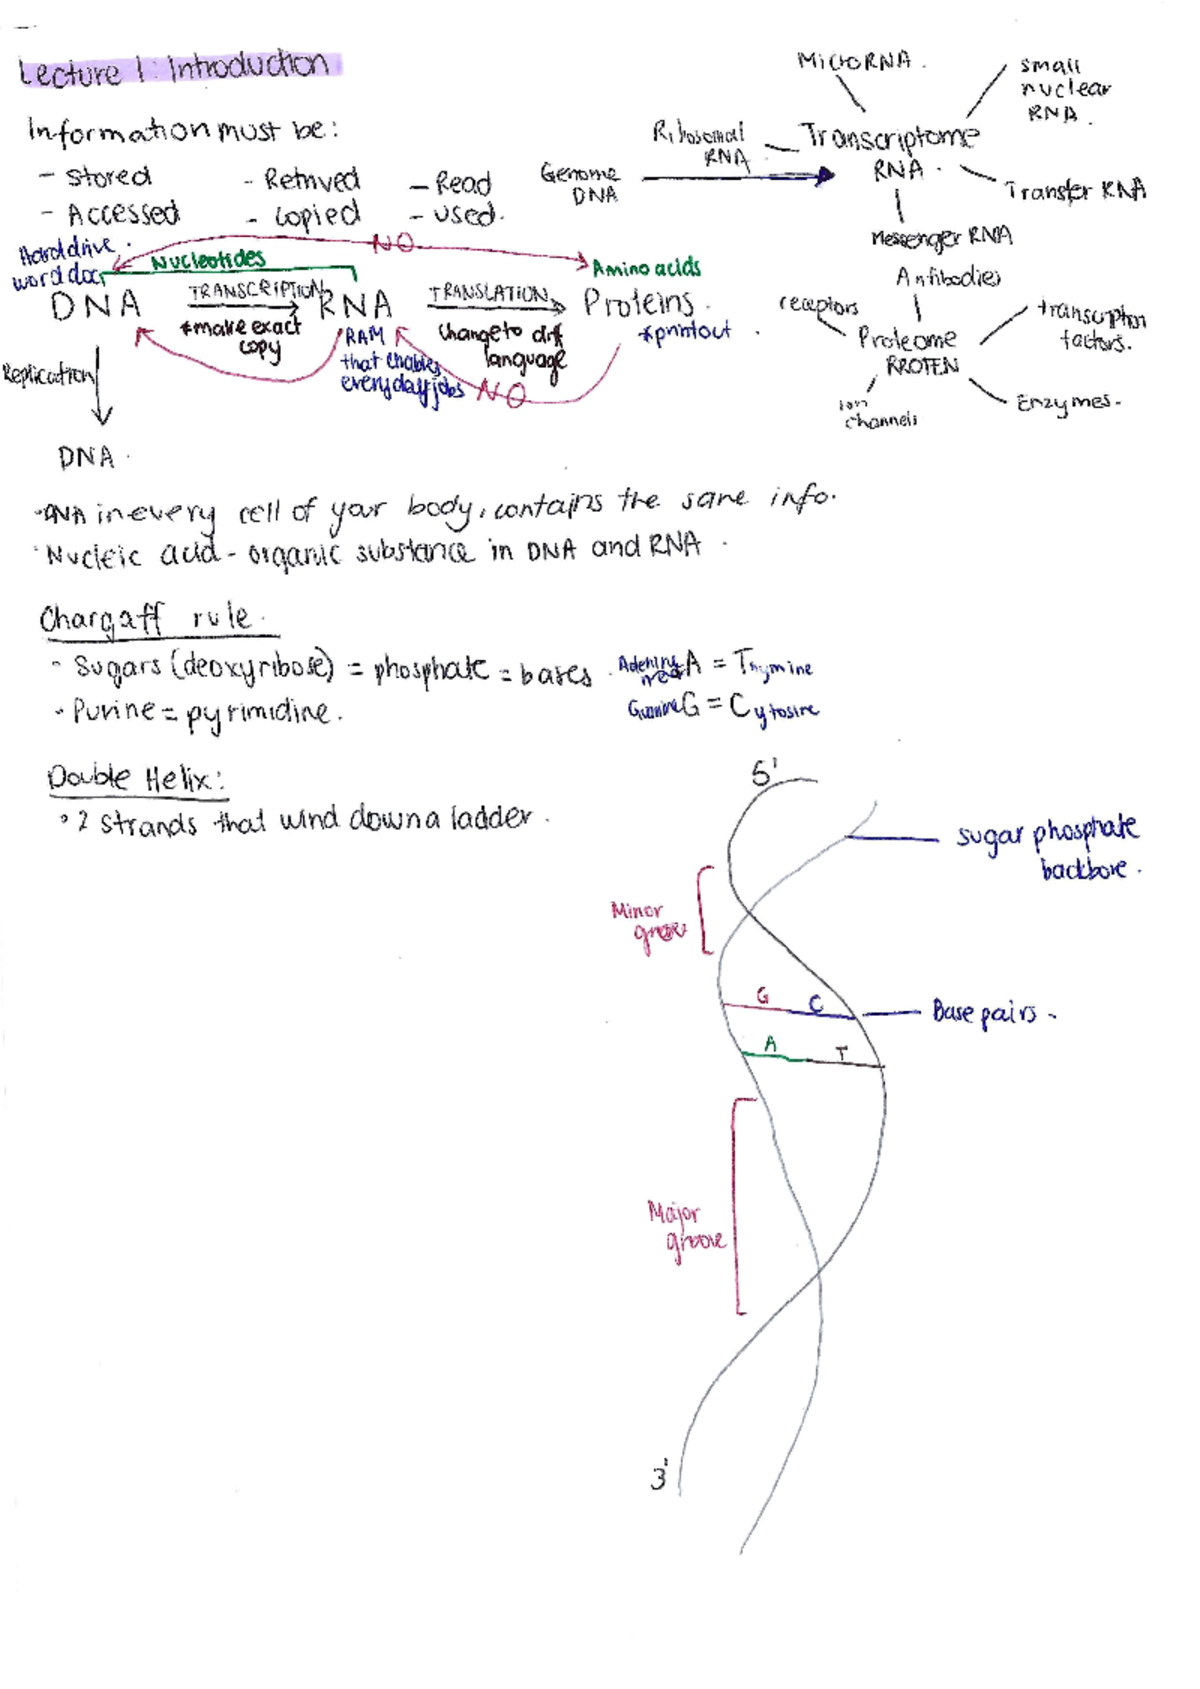 Lecture 1: Introduction
Information must be:
- Stored
- Retrived
- Read
- Accessed
- copied
- used.
Genome
DNA
Ribosomal
RNA
MicroRNA.
small
nuclear
RNA.
Transcriptome
RNA.
Transfer RNA
Messenger RNA
Harddrive.
word doc,
Nucleotides
NO
Amino acids
DNA
TRANSCRIPTION
*make exact
copy
RNA
RAM
that enables
everyday jobs
TRANSLATION
Change to diff
language
NO
Proteins.
*printout.
Replication
DNA.
Antibodies
receptors
transcription
factors.
Proteome
PROTEIN
ion
channels
Enzymes.
· DNA in every cell of your body, contains the same info.
· Nucleic acid - organic substance in DNA and RNA.
Chargaff rule.
- Sugars (deoxyribose) = phosphate = bases.
Adenine A = Thymine
- Purine = pyrimidine.
Guanine G = Cytosine
Double Helix:
· 2 strands that wind down a ladder.
5'
sugar phosphate
backbone.
Minor
groove
G C
Base pairs.
A T
Major
groove
3'